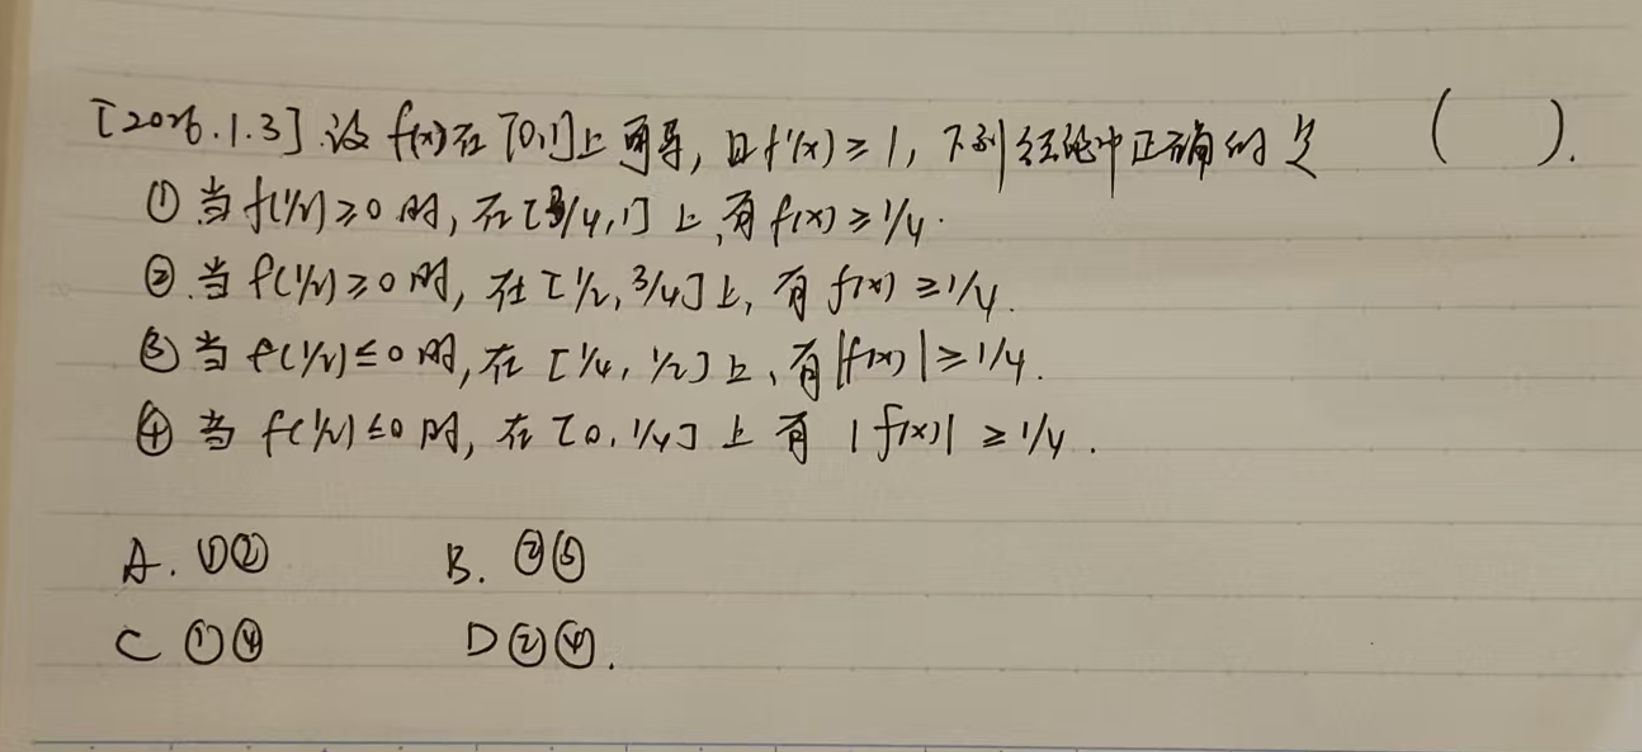 [2026.1.3] 设 f(x)在[0,1]上可导, 且f'(x)≥1, 下列结论中正确的是 ( ).
① 当 f(1/2)≥0 时, 在[3/4,1] 上, 有 f(x)≥1/4.
② 当 f(1/2)≥0 时, 在[1/2, 3/4]上, 有 f(x)≥1/4.
③ 当 f(1/2)≤0 时, 在 [1/4, 1/2]上, 有|f(x)|≥1/4.
④ 当 f(1/2)≤0 时, 在[0, 1/4]上有 |f(x)| ≥1/4.
A. ①② B. ②③
C ①④ D ②④.